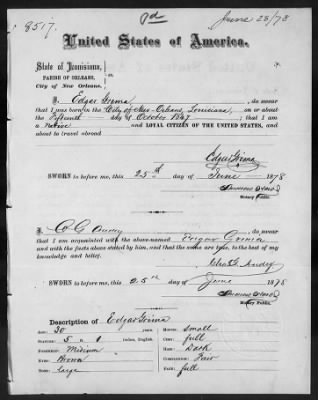 8517.
June 28/78
United States of America.
State of Louisiana,
PARISH OF ORLEANS,
City of New Orleans.
I, Edgar Grima, do swear
that I was born in the City of New-Orleans, Louisiana, on or about
the Fifteenth day of October 1847; that I am a
Native and LOYAL CITIZEN OF THE UNITED STATES, and
about to travel abroad.
Edgar Grima
SWORN to before me, this 25th day of June 1878
Notary Public.
I, do swear
that I am acquainted with the above-named Edgar Grima
and with the facts above stated by him, and that the same are true, to the best of my
knowledge and belief.
SWORN to before me, this 25th day of June 1878
Notary Public.
Description of Edgar Grima
AGE: 30 years
STATURE: 5
FOREHEAD: Medium
EYES: Brown
NOSE: large
MOUTH: small
CHIN: full
HAIR: Dark
COMPLEXION: Fair
FACE: full